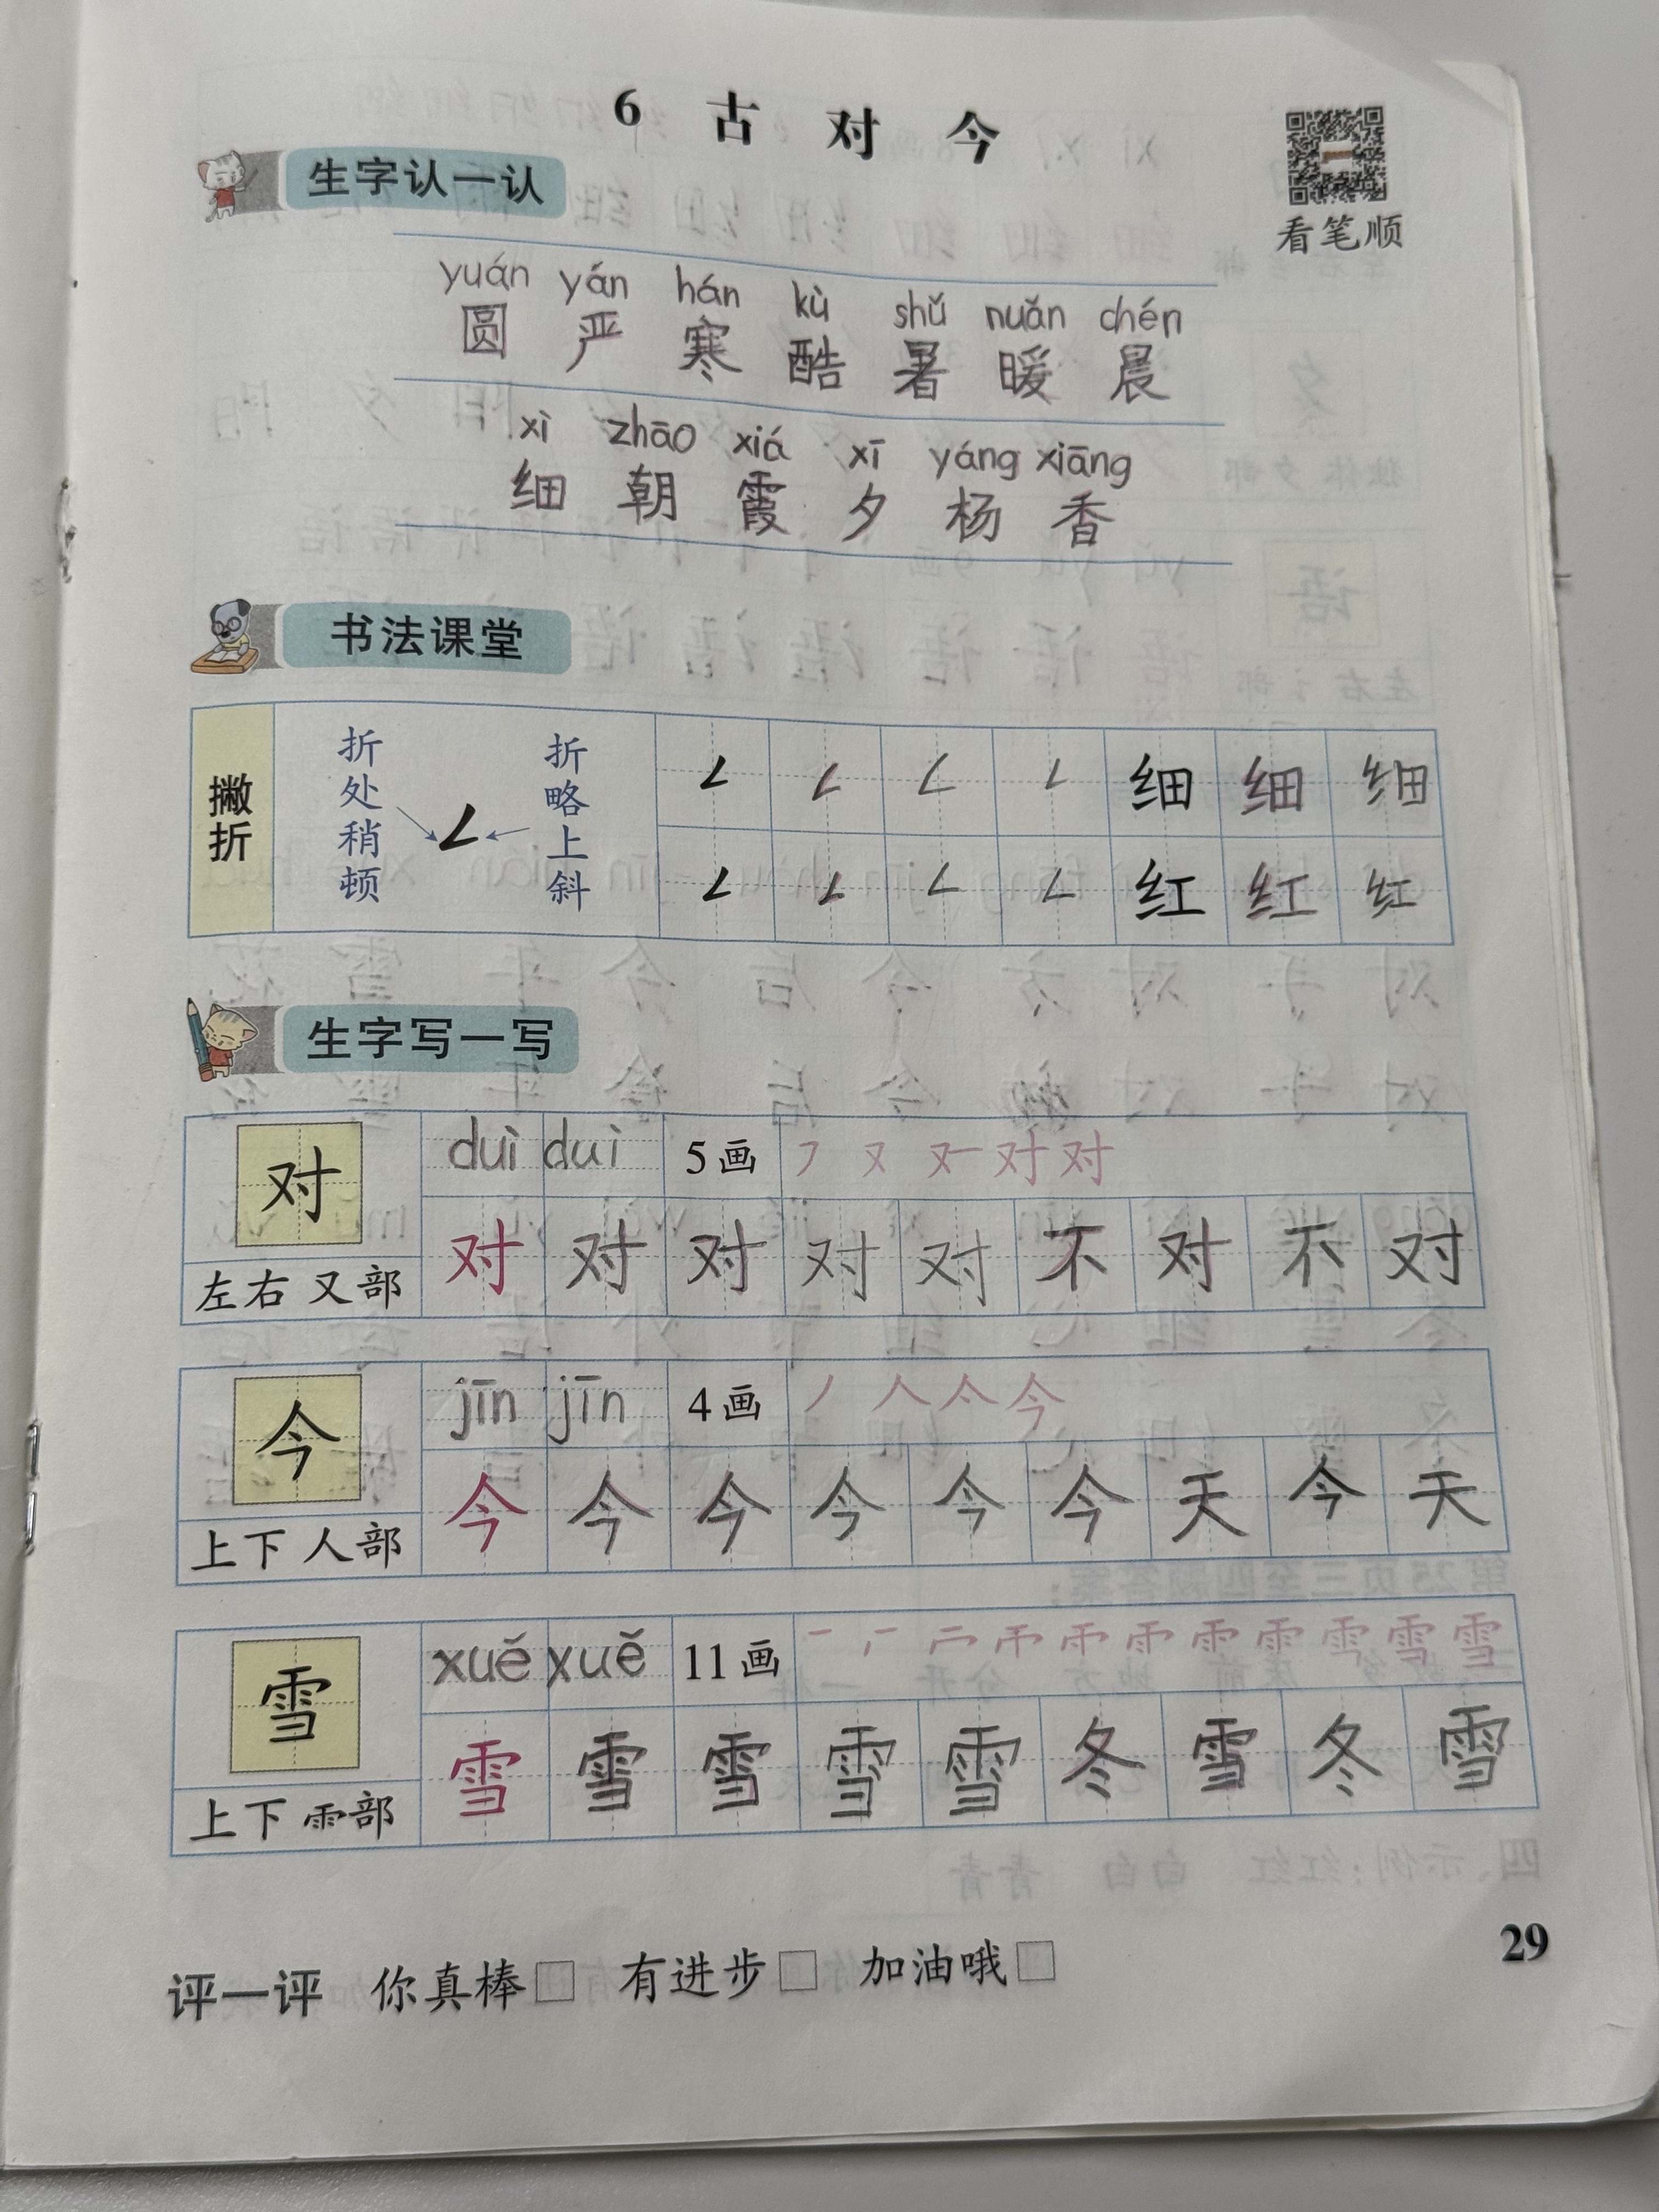 6 古对今
生字认一认
看笔顺
yuán yán hán kù shǔ nuǎn chén
圆 严 寒 酷 暑 暖 晨
xì zhāo xiá xī yáng xiāng
细 朝 霞 夕 杨 香
书法课堂
撇折
折处稍顿
折略上斜
细 细 细
红 红 红
生字写一写
对 duì dui 5画 フ 又 对 对
左右 又部
对 对 对 对 对 不 对 不 对
今 jīn jīn 4画 丿 人 今
上下 人部
今 今 今 今 今 今 天 今 天
雪 xuě xuě 11画 一 雨 雪
上下 雨部
雪 雪 雪 雪 雪 冬 雪 冬 雪
评一评 你真棒□ 有进步□ 加油哦□
29